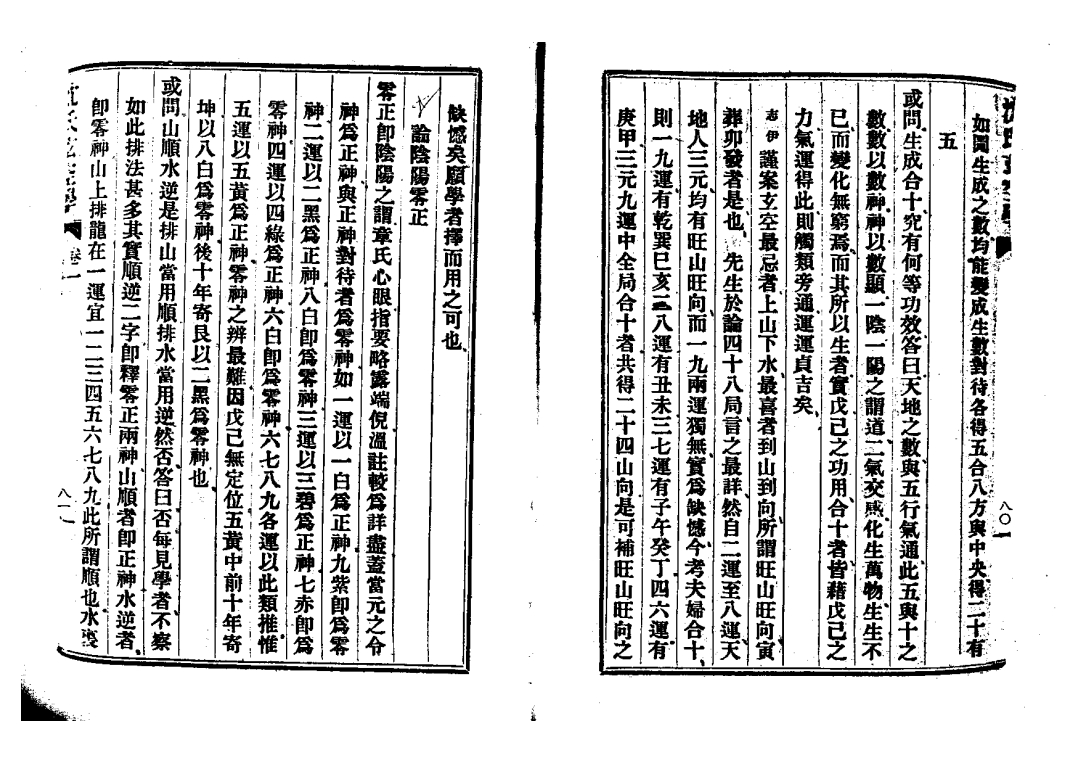 如聞生成之數均能變成生數對待各得五合八方與中央得二十有
五
或問生成合十究有何等功效答曰天地之數與五行氣通此五與十之
數數以數神神以數顯一陰一陽之謂道二氣交感化生萬物生生不
已而變化無窮焉而其所以生者實戊己之功用合十者皆藉戊己之
力氣運得此則觸類旁通運運貞吉矣
志伊謹案玄空最忌者上山下水最喜者到山到向所謂旺山旺向寅
葬卯發者是也 先生於論四十八局言之最詳然自二運至八運天
地人三元均有旺山旺向而一九兩運獨無實爲缺憾今考夫婦合十
則一九運有乾巽巳亥二八運有丑未三七運有子午癸丁四六運有
庚甲三元九運中全局合十者共得二十四山向是可補旺山旺向之
八〇
缺憾矣願學者擇而用之可也
論陰陽零正
零正卽陰陽之謂章氏心眼指要略露端倪溫註較爲詳盡蓋當元之令
神爲正神與正神對待者爲零神如一運以一白爲正神九紫卽爲零
神二運以二黑爲正神八白卽爲零神三運以三碧爲正神七赤卽爲
零神四運以四綠爲正神六白卽爲零神六七八九各運以此類推惟
五運以五黃爲正神零神之辨最難因戊己無定位五黃中前十年寄
坤以八白爲零神後十年寄艮以二黑爲零神也
或問山順水逆是排山當用順排水當用逆然否答曰否每見學者不察
如此排法甚多其實順逆二字卽釋零正兩神山順者卽正神水逆者
卽零神山上排龍在一運宜一二三四五六七八九此所謂順也水裏
卷一
八一